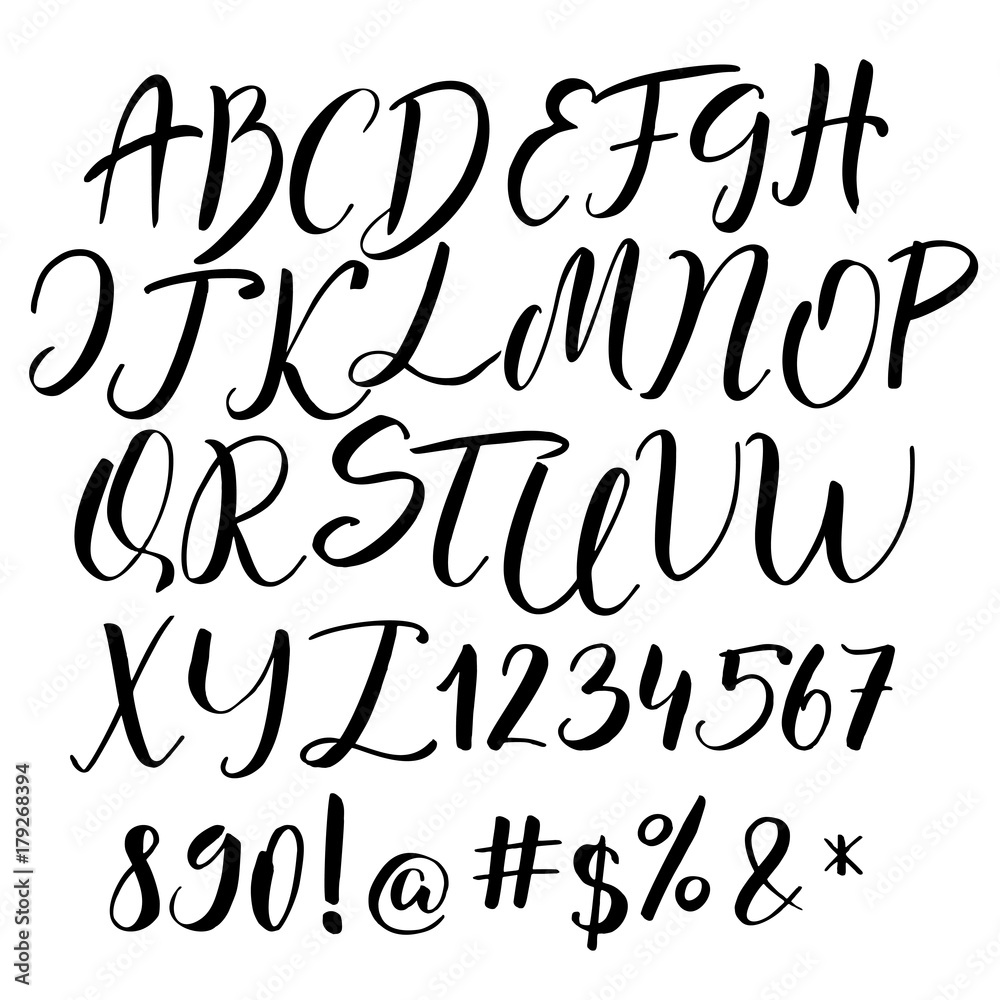 ABCDEFGH
IJKLMNOP
QRSTUVW
XYZ1234567
890!@#$%&*
Adobe Stock | #179268394